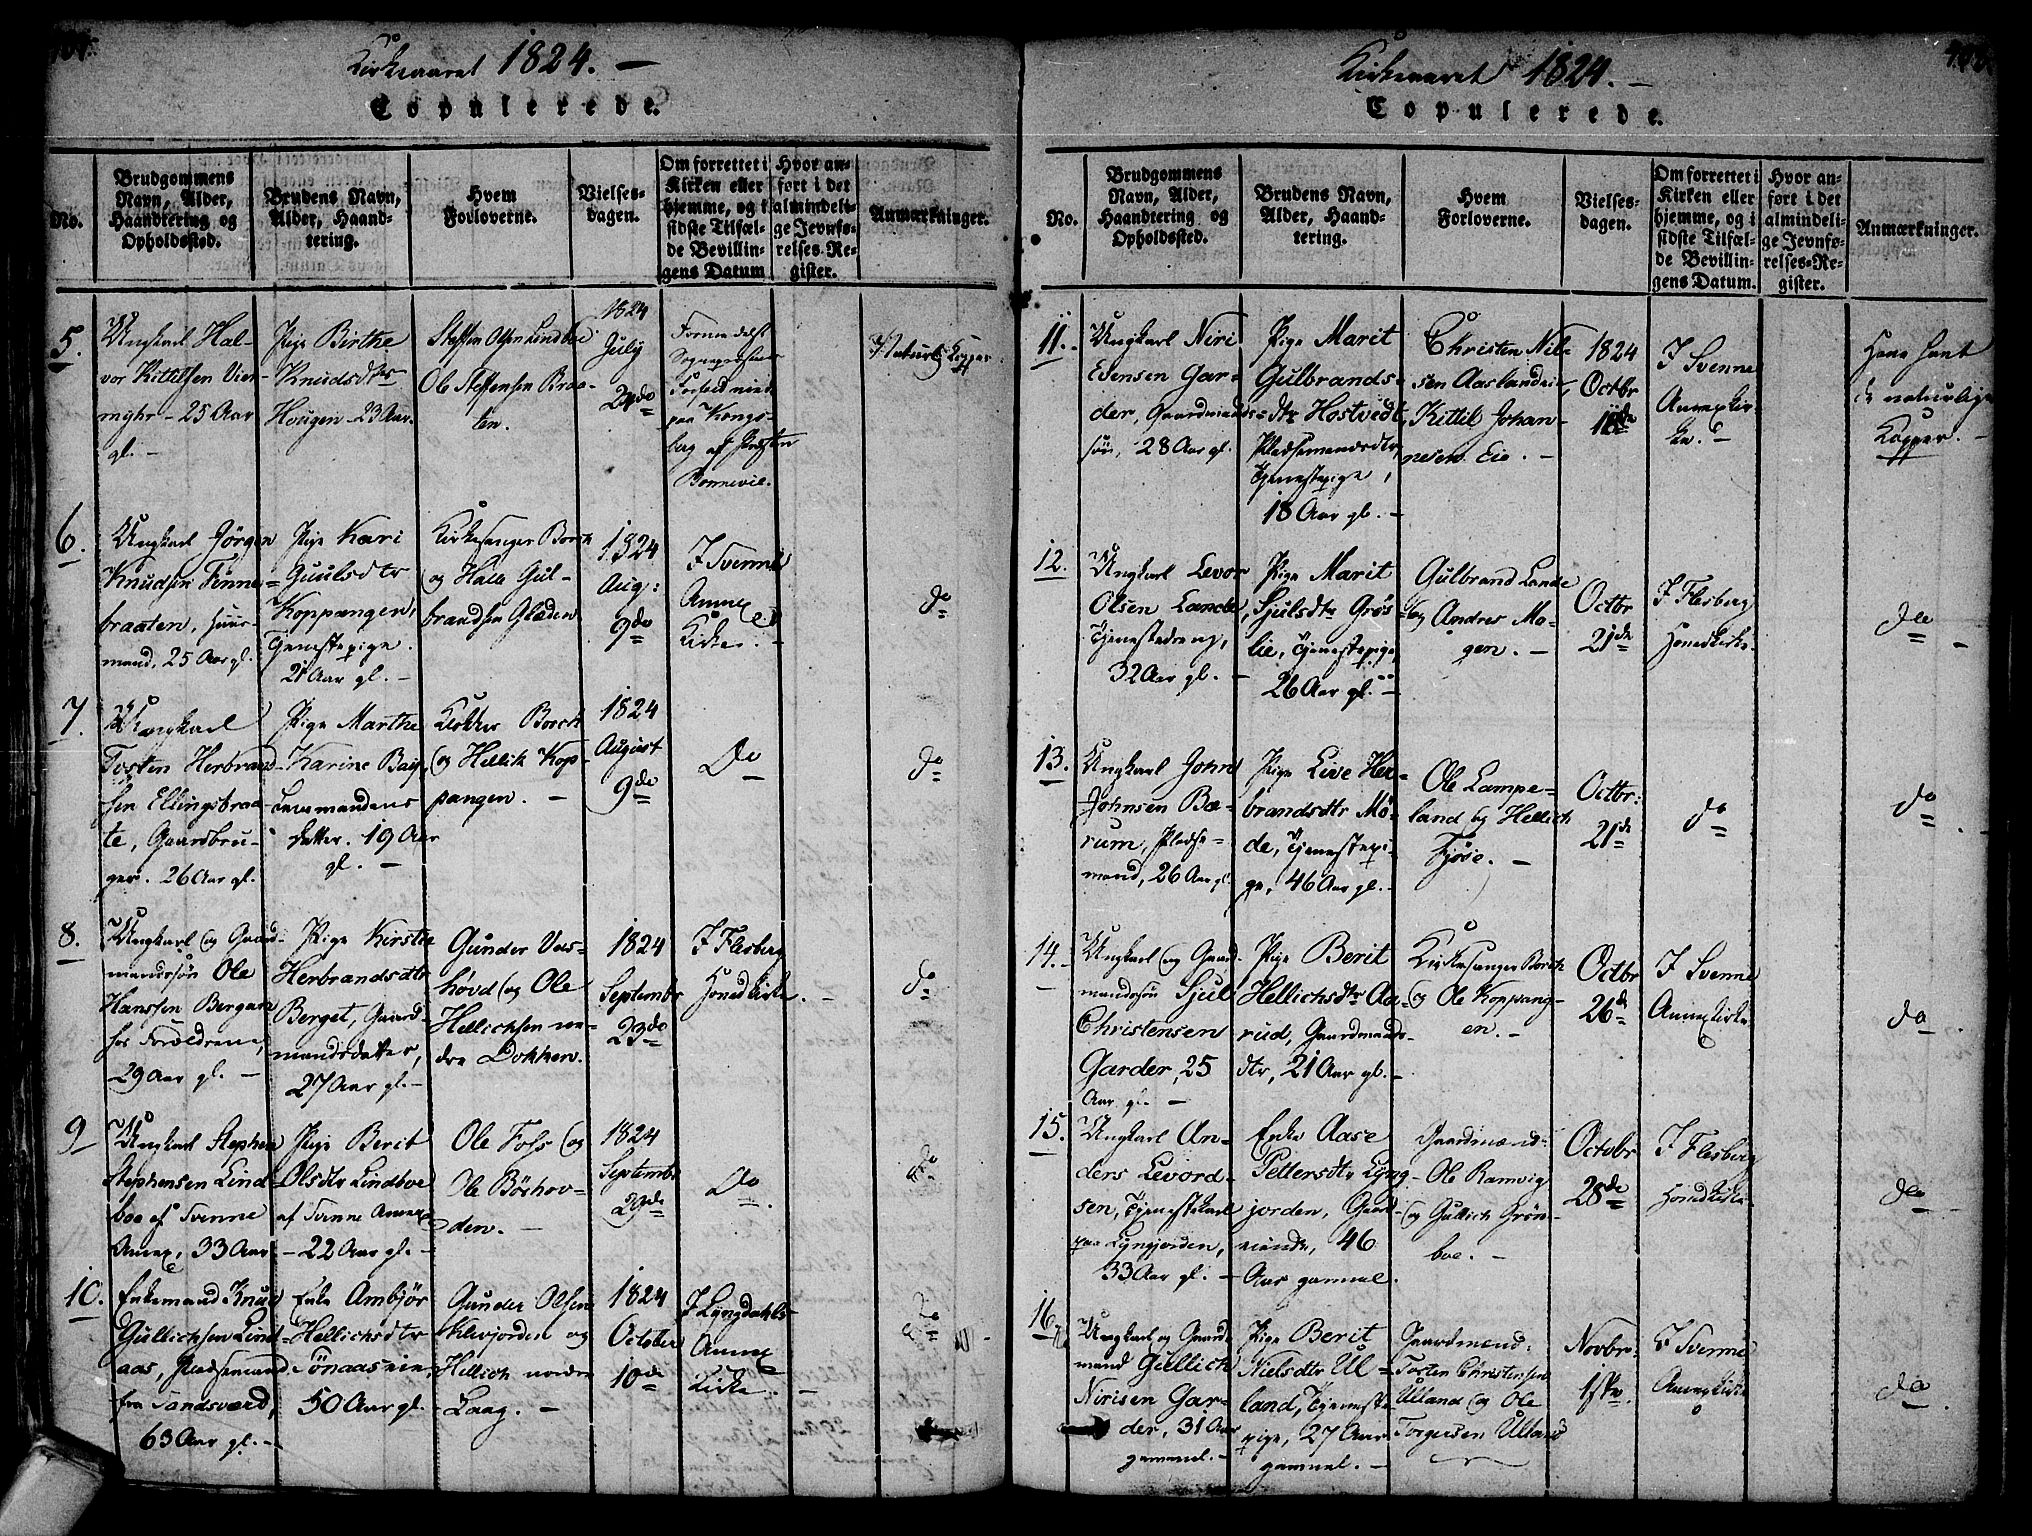 Kirkeaaret 1824. —
Copulerede.
No.
Brudgommens
Navn, Alder,
Haandtering og
Opholdssted.
Brudens Navn,
Alder, Haand-
tering.
Hvem
Forloverne.
Vielses-
dagen.
Om forrettet i
Kirken eller
hjemme, og i
sidste Tilfæl-
de Bevillin-
gens Datum
Hvor an-
ført i det
almindeli-
ge Jevnfø-
relses-Re-
gister.
Anmærkninger.
5.
Ungkarl Hal-
vor Kittilsen Vier-
myhr – 25 Aar
gl. –
Pige Birthe
Knudsdtr
Hougen – 23 Aar.
Steffen Olsen Lindboe
Ole Steffensen Braa-
ten.
1824
July
24de
paa Kongs-
berg af Presten
Bonnevie.
Naturl. Kopper
6.
Ungkarl Jørgen
Knudsen Finne-
braaten, Huus-
mand, 25 Aar gl.
Pige Kari
Guulsdtr
Koppangen,
Tjenestepige.
21 Aar gl. –
Kirkesanger Borch
og Halle Gul-
brandsen Glæden
1824
Aug:
9de
I Svenne
Annex
Kirke. –
do
7.
Ungkarl
Tosten Herbrand-
sen Ellingsbraa-
te, Gaardbru-
ger. 26 Aar gl.
Pige Marthe
Karine Bay,
Lensmandens
datter. 19 Aar
gl. –
Klokker Borch
og Hellik Kop-
pangen. –
1824
August
9de
Do
do
8.
Ungkarl og Gaard-
mandssøn Ole
Hanssen Bergan
hos Forældrene,
29 Aar gl. –
Pige Kirstie
Herbrandsdtr
Berget, Gaard-
mandsdatter,
27 Aar gl. –
Gunder Vas-
hovd og Ole
Hellichsen ne-
dre Dokken.
1824
Septembr
23de
I Flesberg
Hovedkirke. –
do
9
Ungkarl Stephen
Stephensen Lind-
boe af Svenne
Annex, 33 Aar
Pige Berit
Olsdtr Lindboe
af Svenne Annex
– 22 Aar gl. –
Ole Foss og
Ole Børhov-
den. –
1824
Septembr
29de
Do
do
10.
Enkemand Knud
Gullichsen Lind-
aas, Pladsemand
fra Sandsværd,
63 Aar gl. –
Enke Ambjør
Hellichsdtr
Tønaaseie,
50 Aar gl.
Gunder Olsen
Klevjorden og
Hellich nordre
Laag. –
1824
October
10de
I Lyngdahls
Annex
Kirke. –
do
Kirkeaaret 1824. –
Copulerede.
No.
Brudgommens
Navn, Alder,
Haandtering og
Opholdssted.
Brudens Navn,
Alder, Haand-
tering.
Hvem
Forloverne.
Vielses-
dagen.
Om forrettet i
Kirken eller
hjemme, og i
sidste Tilfæl-
de Bevillin-
gens Datum.
Hvor an-
ført i det
almindeli-
ge Jevnfø-
relses-Re-
gister.
Anmærkninger.
11.
Ungkarl Niri
Evensen Gar-
der, Gaardmands-
søn, 28 Aar gl.
Pige Marit
Gulbrands-
dtr Hostvedt,
Pladsemandsdtr,
Tjenestepige,
18 Aar gl. –
Christen Nil-
sen Aaslandeie,
Kittil Johan-
nesen Eie. –
1824
Octbr
I Svenne
Annexkir-
ke. –
Have havt
de naturlige
Kopper. –
12.
Ungkarl Levor
Olsen Lande,
Tjenestedreng,
32 Aar gl. –
Pige Marit
Sjulsdtr Grøs-
lie, Tjenestepige,
26 Aar gl. –
Gulbrand Lande
og Andres Mo-
gen. –
Octbr
21de
I Flesberg
Hovedkirke.
do
13.
Ungkarl John
Johnsen Bæ-
rum, Pladse-
mand, 26 Aar gl.
Pige Live Her-
brandsdtr Mø-
de, Tjenestepi-
ge, 46 Aar gl. –
Ole Lampe-
land og Hellich
Fjøse. –
Octbr:
21de
do
do
14.
Ungkarl og Gaard-
mandssøn Sjul
Christensen
Garder, 25
Aar gl. –
Pige Berit
Hellichsdtr Aa-
rud, Gaardmands-
dtr, 21 Aar gl. –
Kirkesanger Borch
og Ole Koppang-
en. –
Octbr
26de
I Svenne
Annexkirke
do
15.
Ungkarl An-
ders Levord-
sen, Tjenestekarl
paa Lyngjorden,
33 Aar gl. –
Enke Aase
Pettersdtr Lyng-
jorden, Gaard-
46
Aar gammel.
Gaardmænd:
Ole Ramvig
og Gullich Grøn-
boe. –
Octobr
28de
I Flesberg
Hovedkirke
do
16.
Ungkarl og Gaard-
mand Gullich
Nirisen Gar-
der, 31 Aar
gammel. –
Pige Berit
Nielsdtr Ul-
land, Tjeneste-
pige, 27 Aar
gammel. –
Gaardmænd:
Tosten Christensen
Ulland og Ole
Torgersen Ulland
Novbr.
1ste.
I Svenne
Annexkirke
do